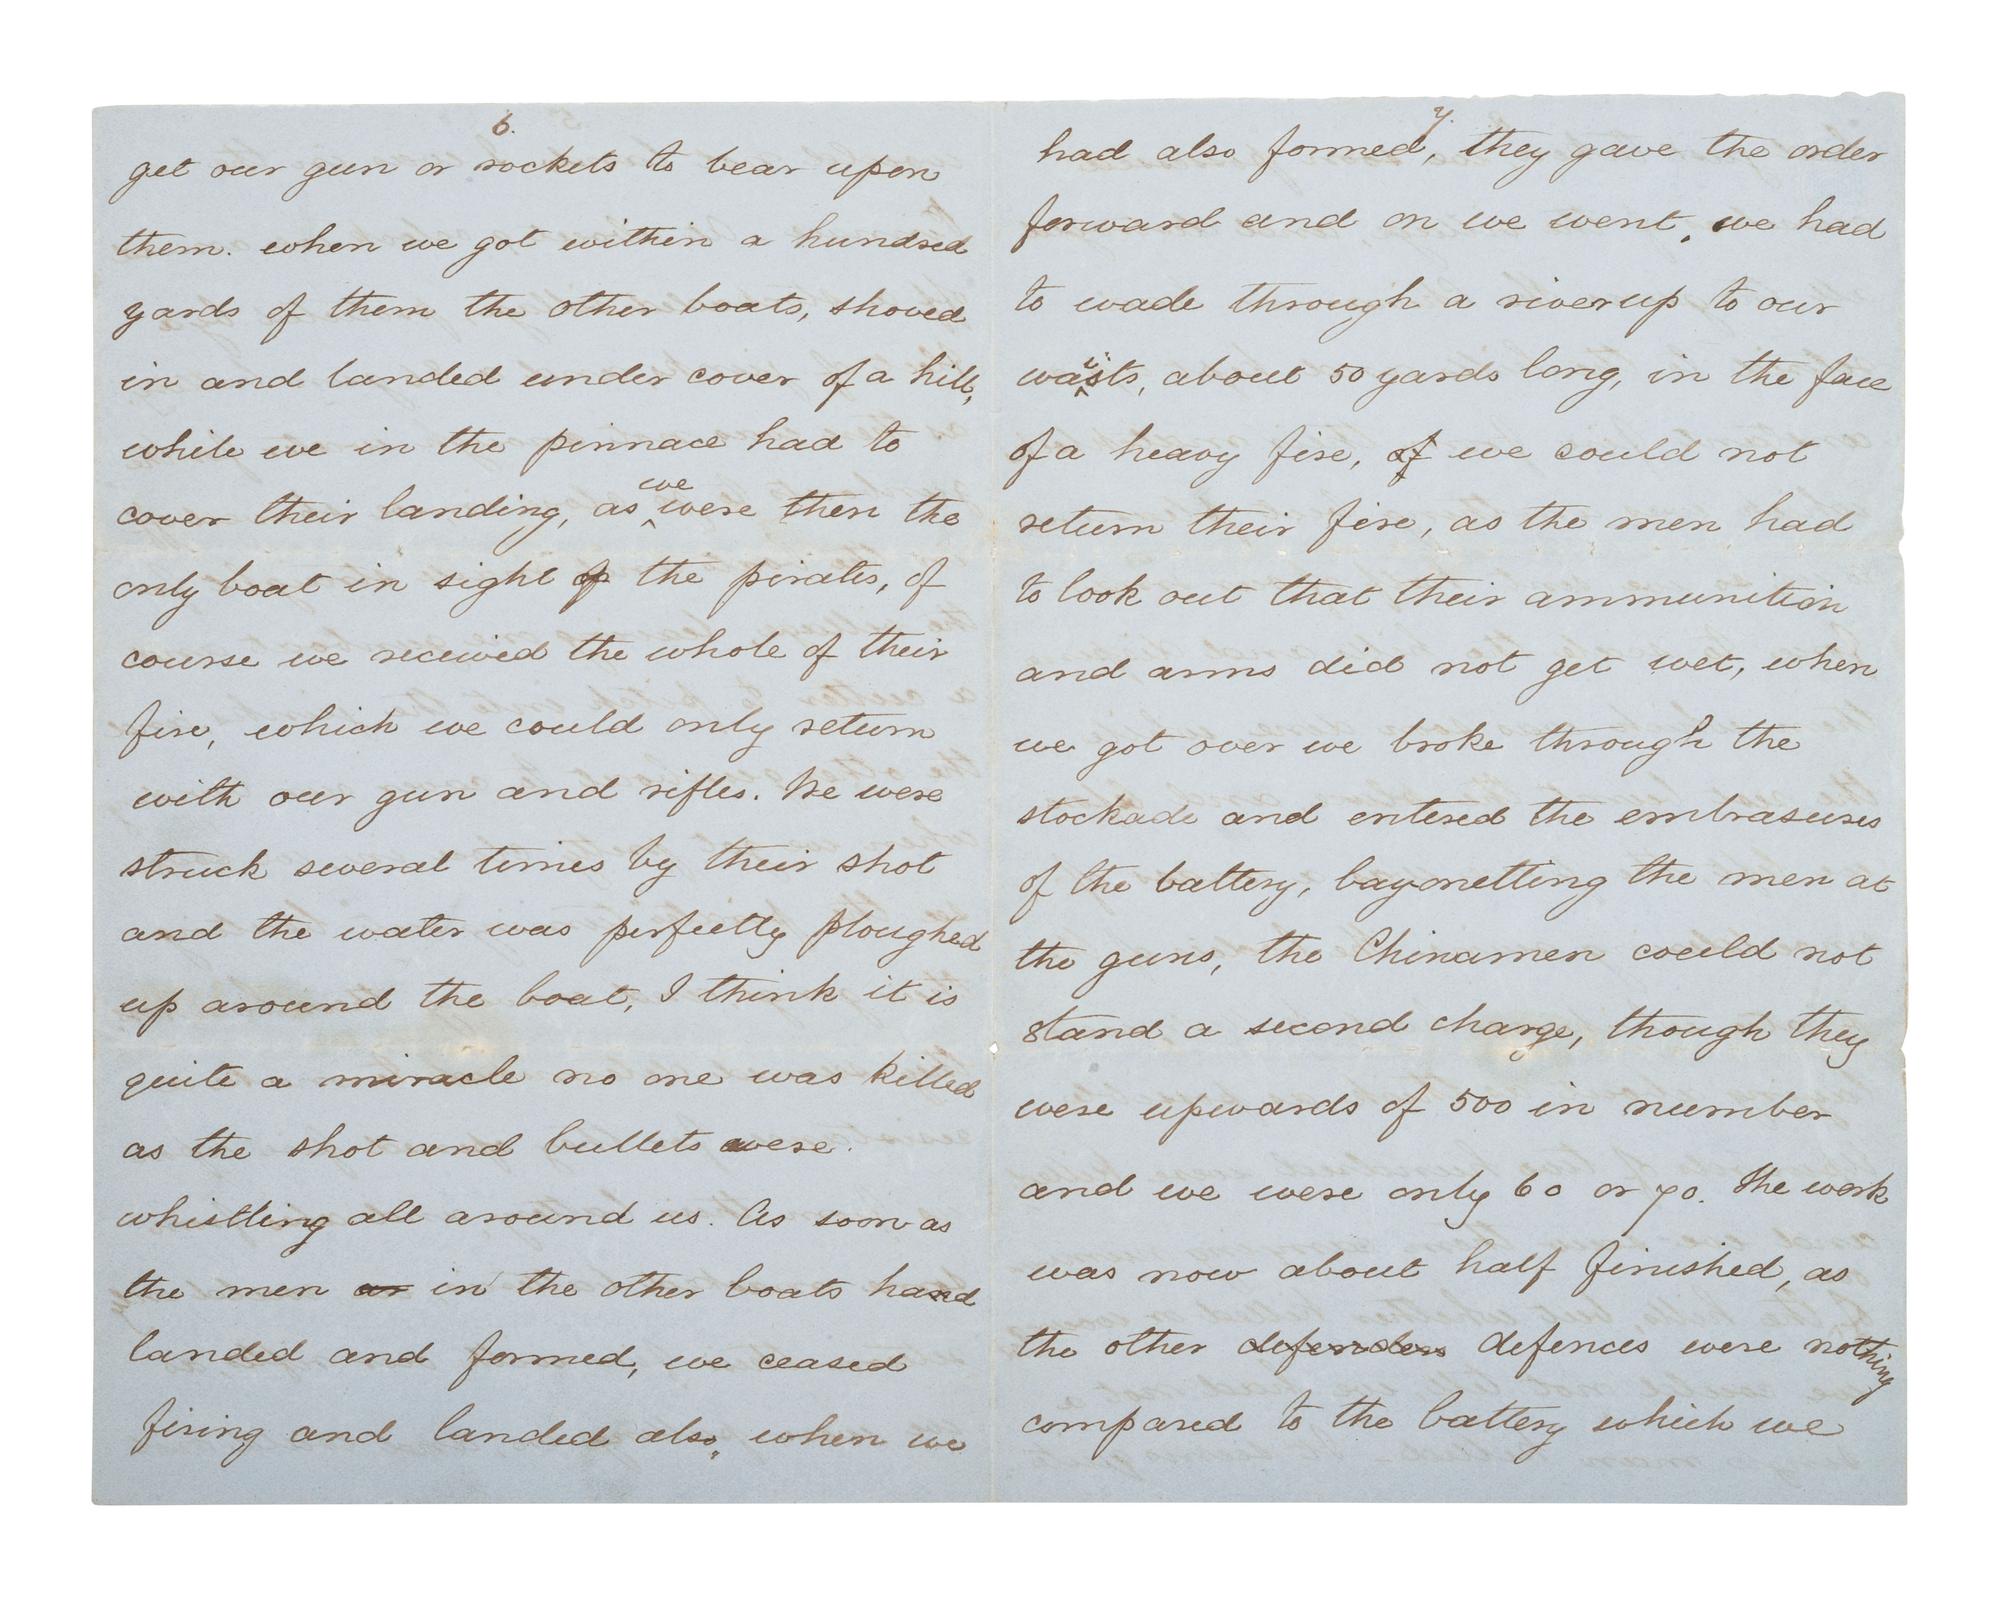 6.
get our gun or rockets to bear upon
them. when we got within a hundred
yards of them the other boats, shoved
in and landed under cover of a hill,
while we in the pinnace had to
cover their landing, as we were then the
only boat in sight of the pirates, of
course we received the whole of their
fire, which we could only return
with our gun and rifles. We were
struck several times by their shot
and the water was perfectly ploughed
up around the boat, I think it is
quite a miracle no one was killed
as the shot and bullets were.
whistling all around us. As soon as
the men ar in the other boats hand
landed and formed, we ceased
firing and landed also, when we
7.
had also formed, they gave the order
forward and on we went, we had
to wade through a river up to our
waists, about 50 yards long, in the face
of a heavy fire, of we could not
return their fire, as the men had
to look out that their ammunition
and arms did not get wet, when
we got over we broke through the
stockade and entered the embrasures
of the battery, bayonetting the men at
the guns, the Chinamen could not
stand a second charge, though they
were upwards of 500 in number
and we were only 60 or 70. The work
was now about half finished, as
the other defenders defences were nothing
compared to the battery which we